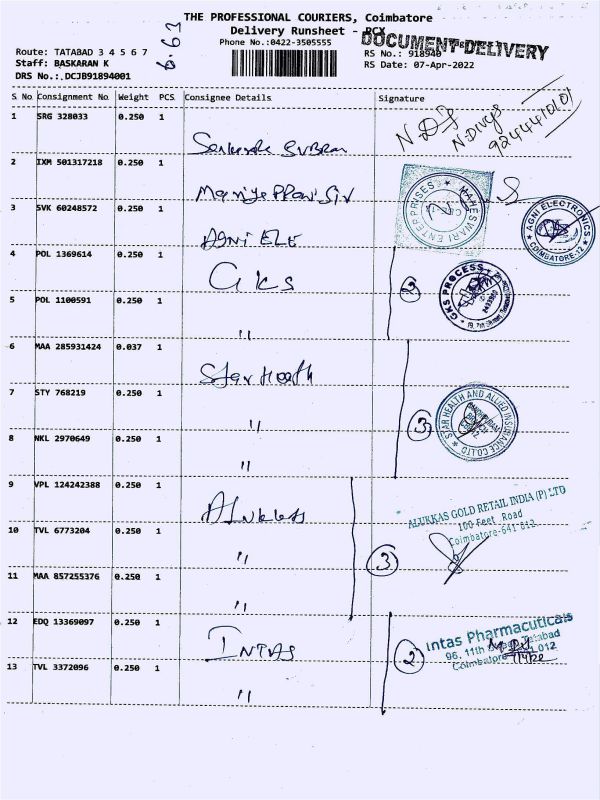 THE PROFESSIONAL COURIERS, Coimbatore
Delivery Runsheet - PCX
Phone No.:0422-3505555
DOCUMENT DELIVERY
Route: TATABAD 3 4 5 6 7
Staff: BASKARAN K
DRS No.:.DCJB91894001
RS No.: 918940
RS Date: 07-Apr-2022
S No Consignment No Weight PCS Consignee Details Signature
1 SRG 328033 0.250 1
N.Divya
9244410101
2 IXM 501317218 0.250 1
MAHESWARI ENTERPRISES
3 SVK 60248572 0.250 1 AGNI ELE
AGNI ELECTRONICS
COIMBATORE-12
4 POL 1369614 0.250 1 GKS
2
GKS PROCESS
5 POL 1100591 0.250 1 "
6 MAA 285931424 0.037 1 Star Health
7 STY 768219 0.250 1 "
3
STAR HEALTH AND ALLIED INSURANCE CO LTD
8 NKL 2970649 0.250 1 "
9 VPL 124242388 0.250 1
ALUKKAS GOLD RETAIL INDIA (P) LTD
100 Feet Road
Coimbatore-641 012
10 TVL 6773204 0.250 1 "
3
11 MAA 857255376 0.250 1 "
12 EDQ 13369097 0.250 1 INTAS
2
Intas Pharmaceuticals
96, 11th Tatabad
Coimbatore 012
13 TVL 3372096 0.250 1 "